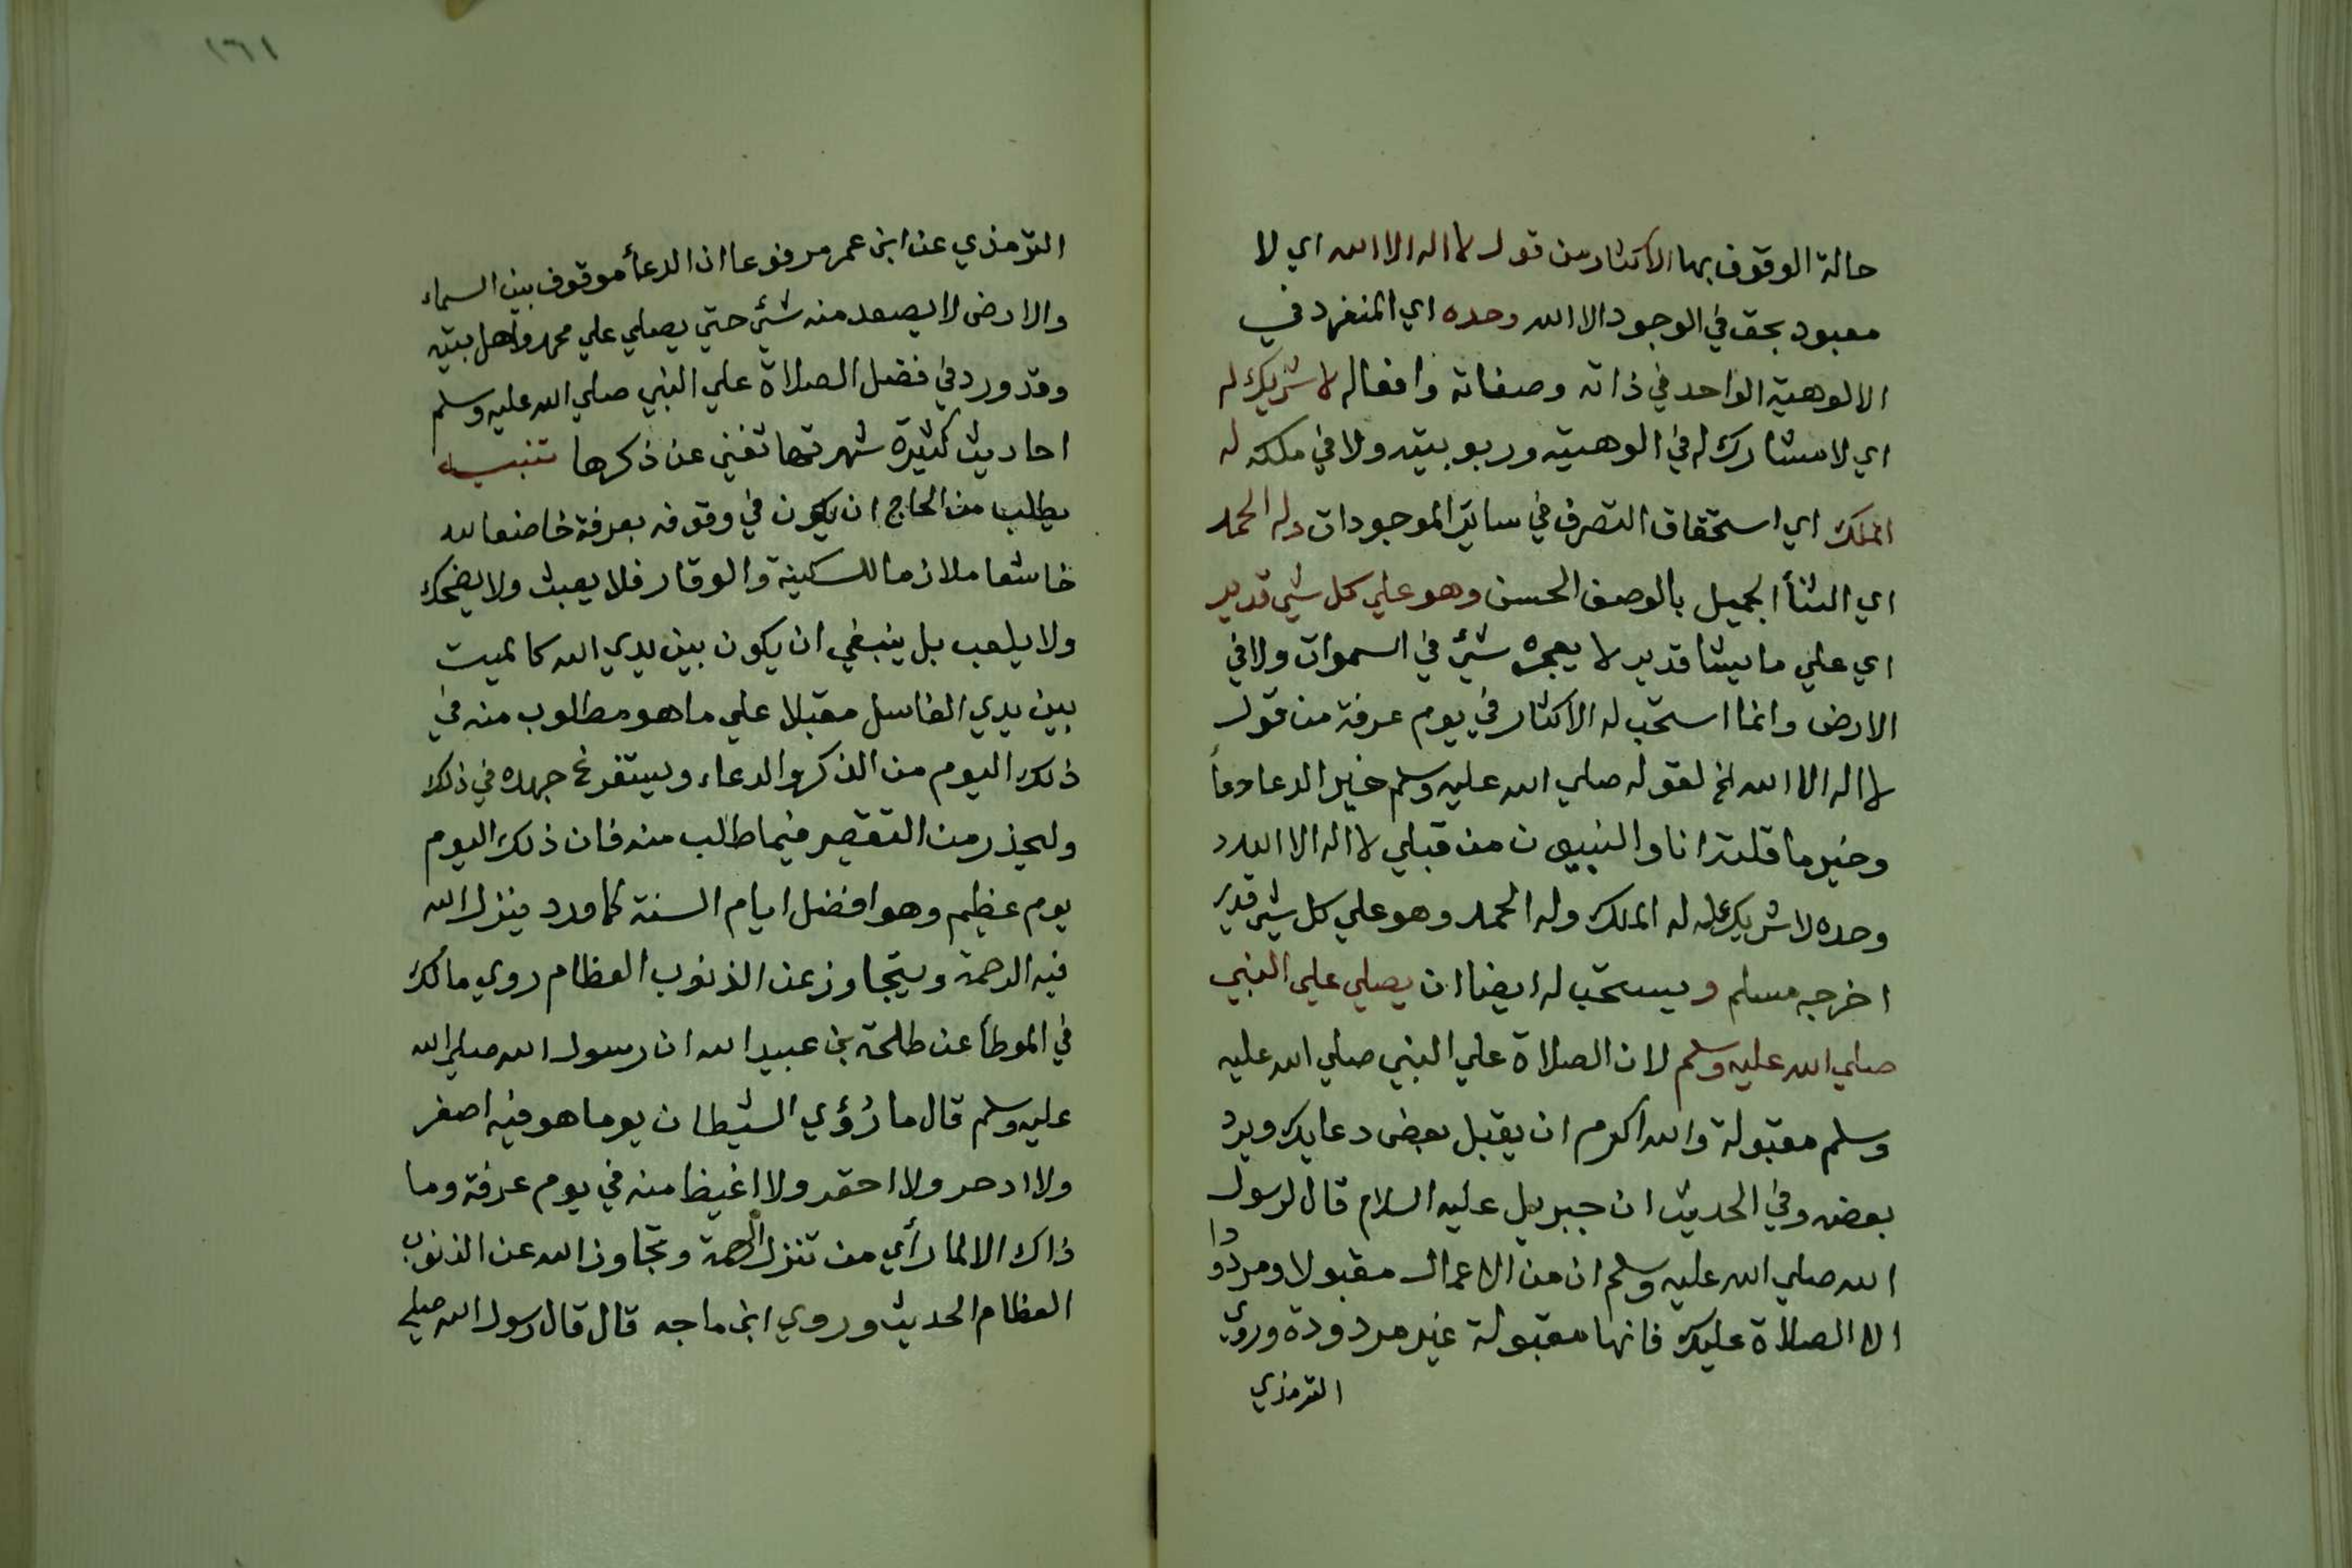 حالة الوقوف بها الاكثار من قول لا اله الا الله اي لا
معبود بحق في الوجود الا الله وحده اي المنفرد في
الالوهية الواحد في ذاته وصفاته وافعاله لا شريك له
اي لا مشارك له في الوهيته وربوبيته ولا في ملكه له
الملك اي استحقاق التصرف في ساير الموجودات وله الحمد
اي الثنأ الجميل بالوصف الحسن وهو علي كل شي قدير
اي علي ما يشا قدير لا يعجزه شئ في السموات ولا في
الارض وانما استحب له الاكثار في يوم عرفة من قول
لا اله الا الله الخ لقوله صلي الله عليه وسلم خير الدعا دعأ
وخير ما قلته انا والنبييون من قبلي لا اله الا الله
وحده لا شريك له له الملك وله الحمد وهو علي كل شي قدير
اخرجه مسلم ويستحب له ايضا ان يصلي علي النبي
صلي الله عليه وسلم لان الصلاة علي النبي صلي الله عليه
وسلم مقبولة والله اكرم ان يقبل بعض دعايك ويرد
بعضه وفي الحديث ان جبريل عليه السلام قال لرسول
الله صلي الله عليه وسلم ان من الاعمال مقبولا ومردودا
الا الصلاة عليك فانها مقبولة غير مردودة وروي
الترمذي
١٦١
الترمذي عن ابن عمر مرفوعا ان الدعأ موقوف بين السماء
والارض لا يصعد منه شئ حتي يصلي علي محمد واهل بيته
وقد ورد في فضل الصلاة علي النبي صلي الله عليه وسلم
احاديث كثيرة شهرتها تغني عن ذكرها تنبيه
يطلب من الحاج ان يكون في وقوفه بعرفة خاضعا لله
خاشعا ملازما للسكينة والوقار فلا يعبث ولا يضحك
ولا يلعب بل ينبغي ان يكون بين يدي الله كالميت
بين يدي الغاسل مقبلا علي ما هو مطلوب منه في
ذلك اليوم من الذكر والدعاء ويستفرغ جهده في ذلك
وليحذر من التقصير فيما طلب منه فان ذلك اليوم
يوم عظيم وهو افضل ايام السنة كما ورد فينزل الله
فيه الرحمة ويتجاوز عن الذنوب العظام روي مالك
في الموطأ عن طلحة بن عبيد الله ان رسول الله صلي الله
عليه وسلم قال ما رُؤي الشيطان يوما هو فيه اصغر
ولا ادحر ولا احقر ولا اغيظ منه في يوم عرفة وما
ذاك الا لما رأي من تنزل الرحمة وتجاوز الله عن الذنوب
العظام الحديث وروي ابن ماجه قال قال رسول الله صلي